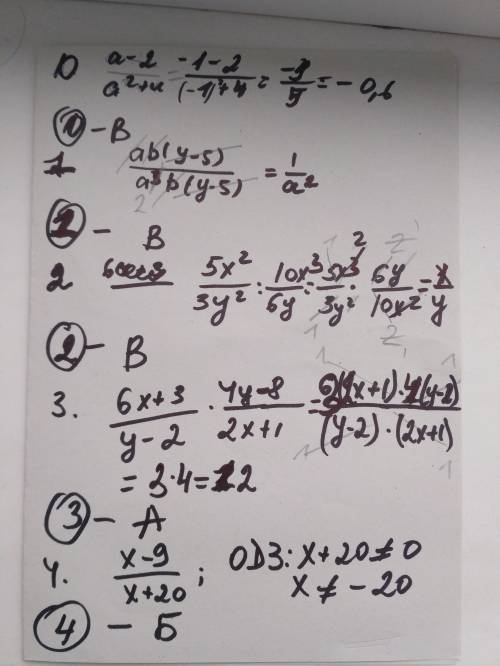 1) (a-2)/(a²+4) = (-1-2)/((-1)²+4) = -3/5 = -0,6
① - В
1 ab(y-5)/(a³b(y-5)) = 1/a²
① - В
2 5x²/3y² : 10x³/6y = 5x³/3y² · 6y/10x² = x/y
② - В
3. (6x+3)/(y-2) · (4y-8)/(2x+1) = (2x+1)·4(y-2)/((y-2)·(2x+1))
= 3·4=12
③ - А
4. (x-9)/(x+20) ; ОДЗ: x+20≠0
x ≠ -20
④ - Б